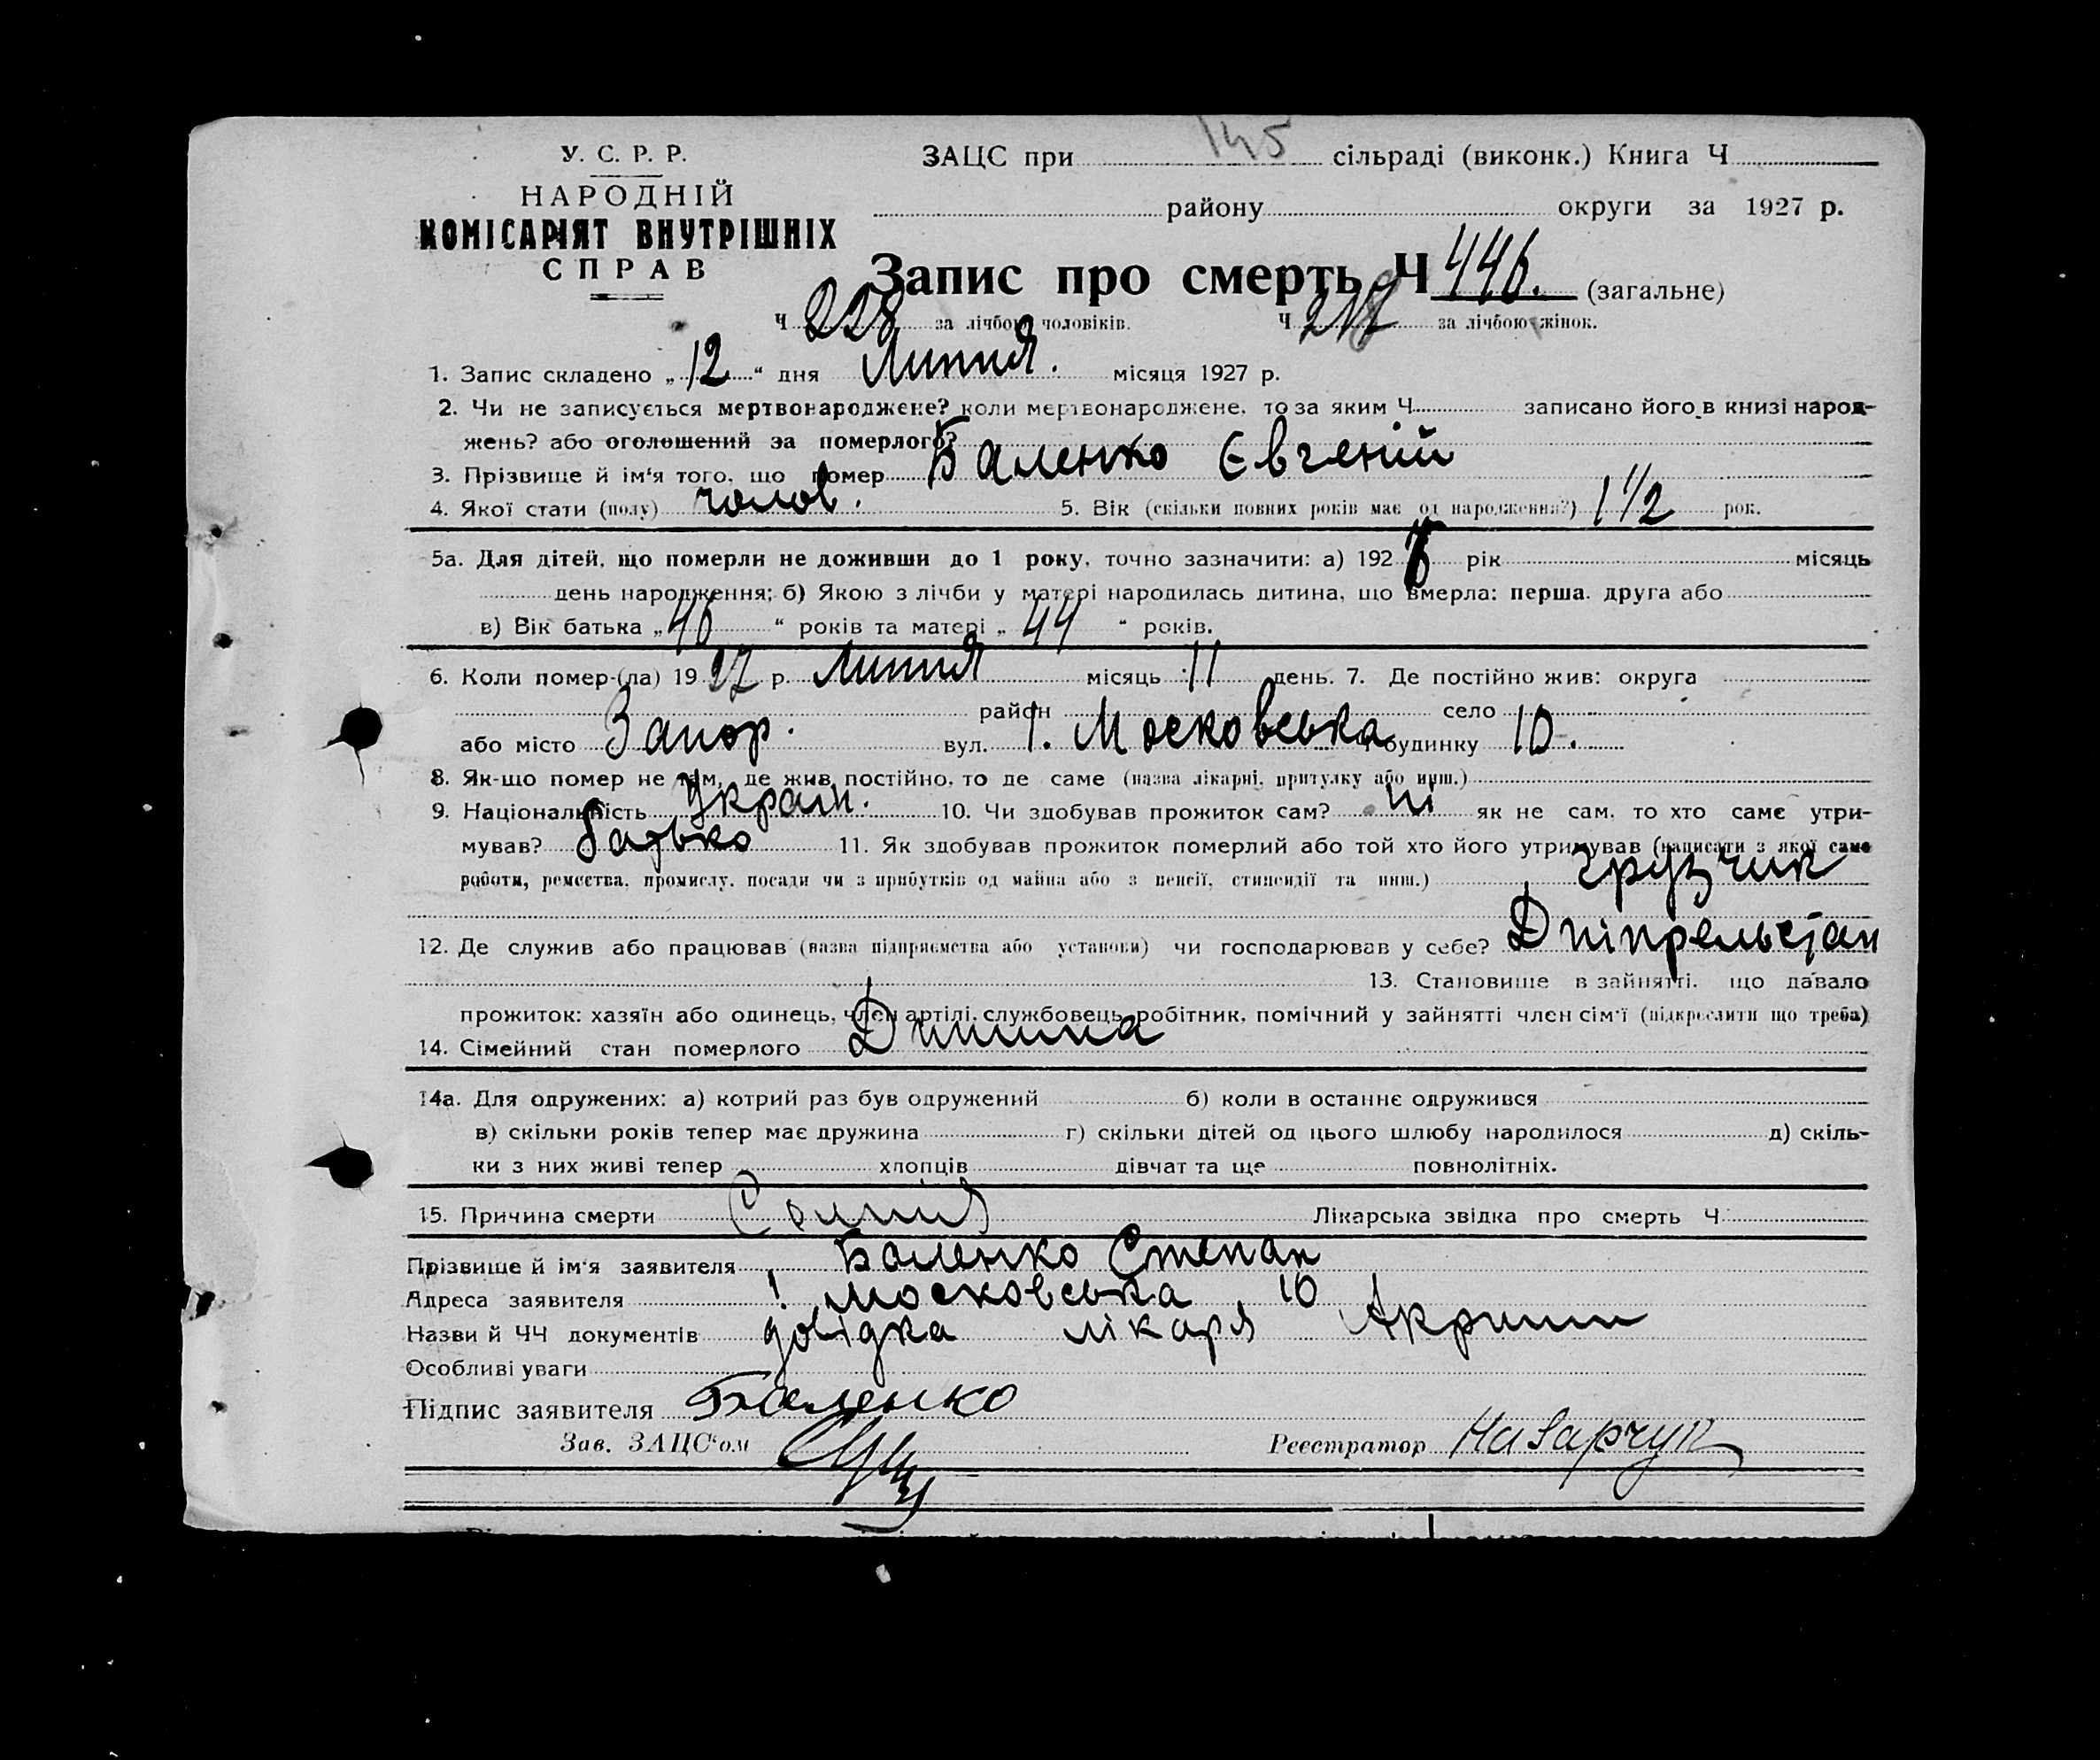 145
У. С. Р. Р.
НАРОДНІЙ
КОМІСАРІЯТ ВНУТРІШНІХ
СПРАВ
ЗАЦС при сільраді (виконк.) Книга Ч
району округи за 1927 р.
Запис про смерть Ч 446. (загальне)
Ч 228 за лічбою чоловіків. Ч 218 за лічбою жінок.
1. Запис складено „12“ дня Липня. місяця 1927 р.
2. Чи не записується мертвонароджене? коли мертвонароджене, то за яким Ч записано його в книзі народ-
жень? або оголошений за померлого?
3. Прізвище й ім'я того, що помер Баленко Євгеній
4. Якої стати (полу) чолов. 5. Вік (скільки повних років має од народження?) 1 1/2 рок.
5а. Для дітей, що померли не доживши до 1 року, точно зазначити: а) 192 рік місяць
день народження; б) Якою з лічби у матері народилась дитина, що вмерла: перша, друга або
в) Вік батька „46“ років та матері „44“ років.
6. Коли помер-(ла) 1927 р. Липня місяць 11 день. 7. Де постійно жив: округа
район село
або місто Запор. вул. 1. Московська будинку 10.
8. Як-що помер не там, де жив постійно, то де саме (назва лікарні, притулку або инш.)
9. Національність Украін. 10. Чи здобував прожиток сам? ні як не сам, то хто саме утри-
мував? батько 11. Як здобував прожиток померлий або той хто його утримував (написати з якої саме
роботи, ремества, промислу, посади чи з прибутків од майна або з пенсії, стипендії та инш.) грузчик
12. Де служив або працював (назва підприємства або установи) чи господарював у себе? Дніпрельстан
13. Становище в зайнятті, що давало
прожиток: хазяїн або одинець, член артілі, службовець, робітник, помічний у зайнятті член сім'ї (підкреслити що треба)
14. Сімейний стан померлого Дитина
14а. Для одружених: а) котрий раз був одружений б) коли в останнє одружився
в) скільки років тепер має дружина г) скільки дітей од цього шлюбу народилося д) скіль-
ки з них живі тепер хлопців дівчат та ще повнолітніх.
15. Причина смерти Лікарська звідка про смерть Ч
Прізвище й ім'я заявителя Баленко Степан
Адреса заявителя 1 Московська 10
Назви й ЧЧ документів довідка лікаря
Особливі уваги
Підпис заявителя Баленко
Зав. ЗАЦС'ом Реєстратор Назарчук